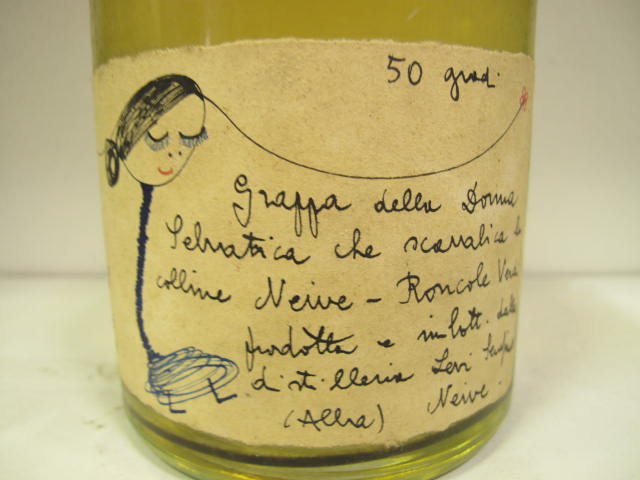 50 grad.
Grappa della Donna
Selvatica che scavalca le
colline Neive - Roncole
prodotta e imbott. dalla
distilleria Levi Serafino
Neive.
(Alba)